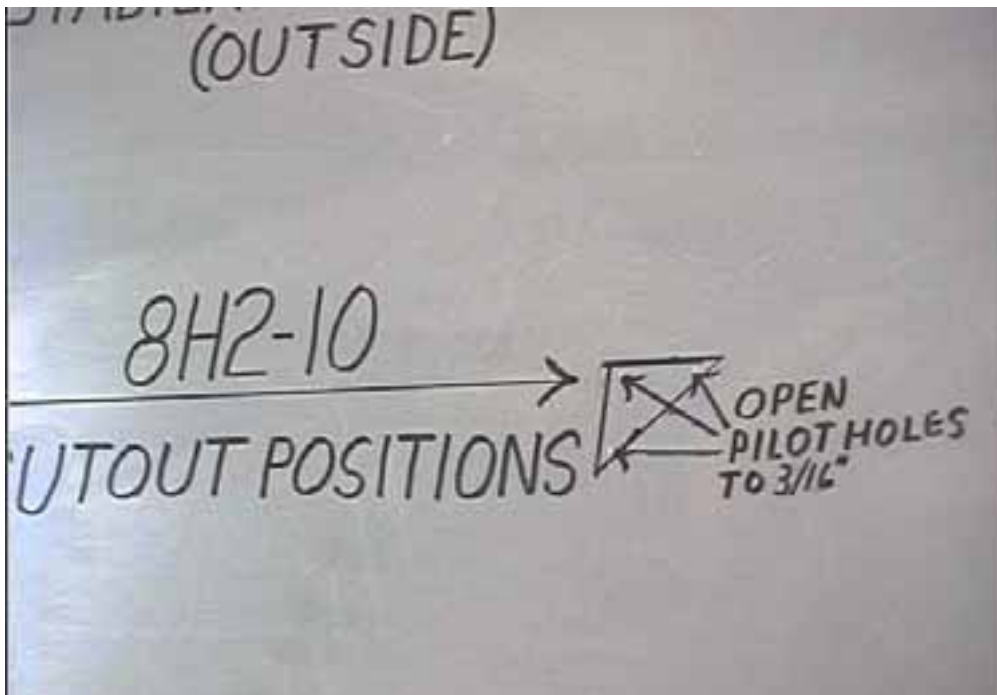 (OUTSIDE)
8H2-10
UTOUT POSITIONS
OPEN
PILOT HOLES
TO 3/16"